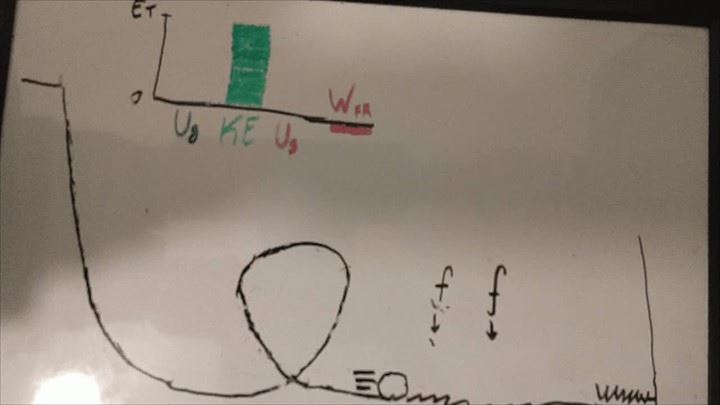 ET
0
Ug KE Us WFR
f f